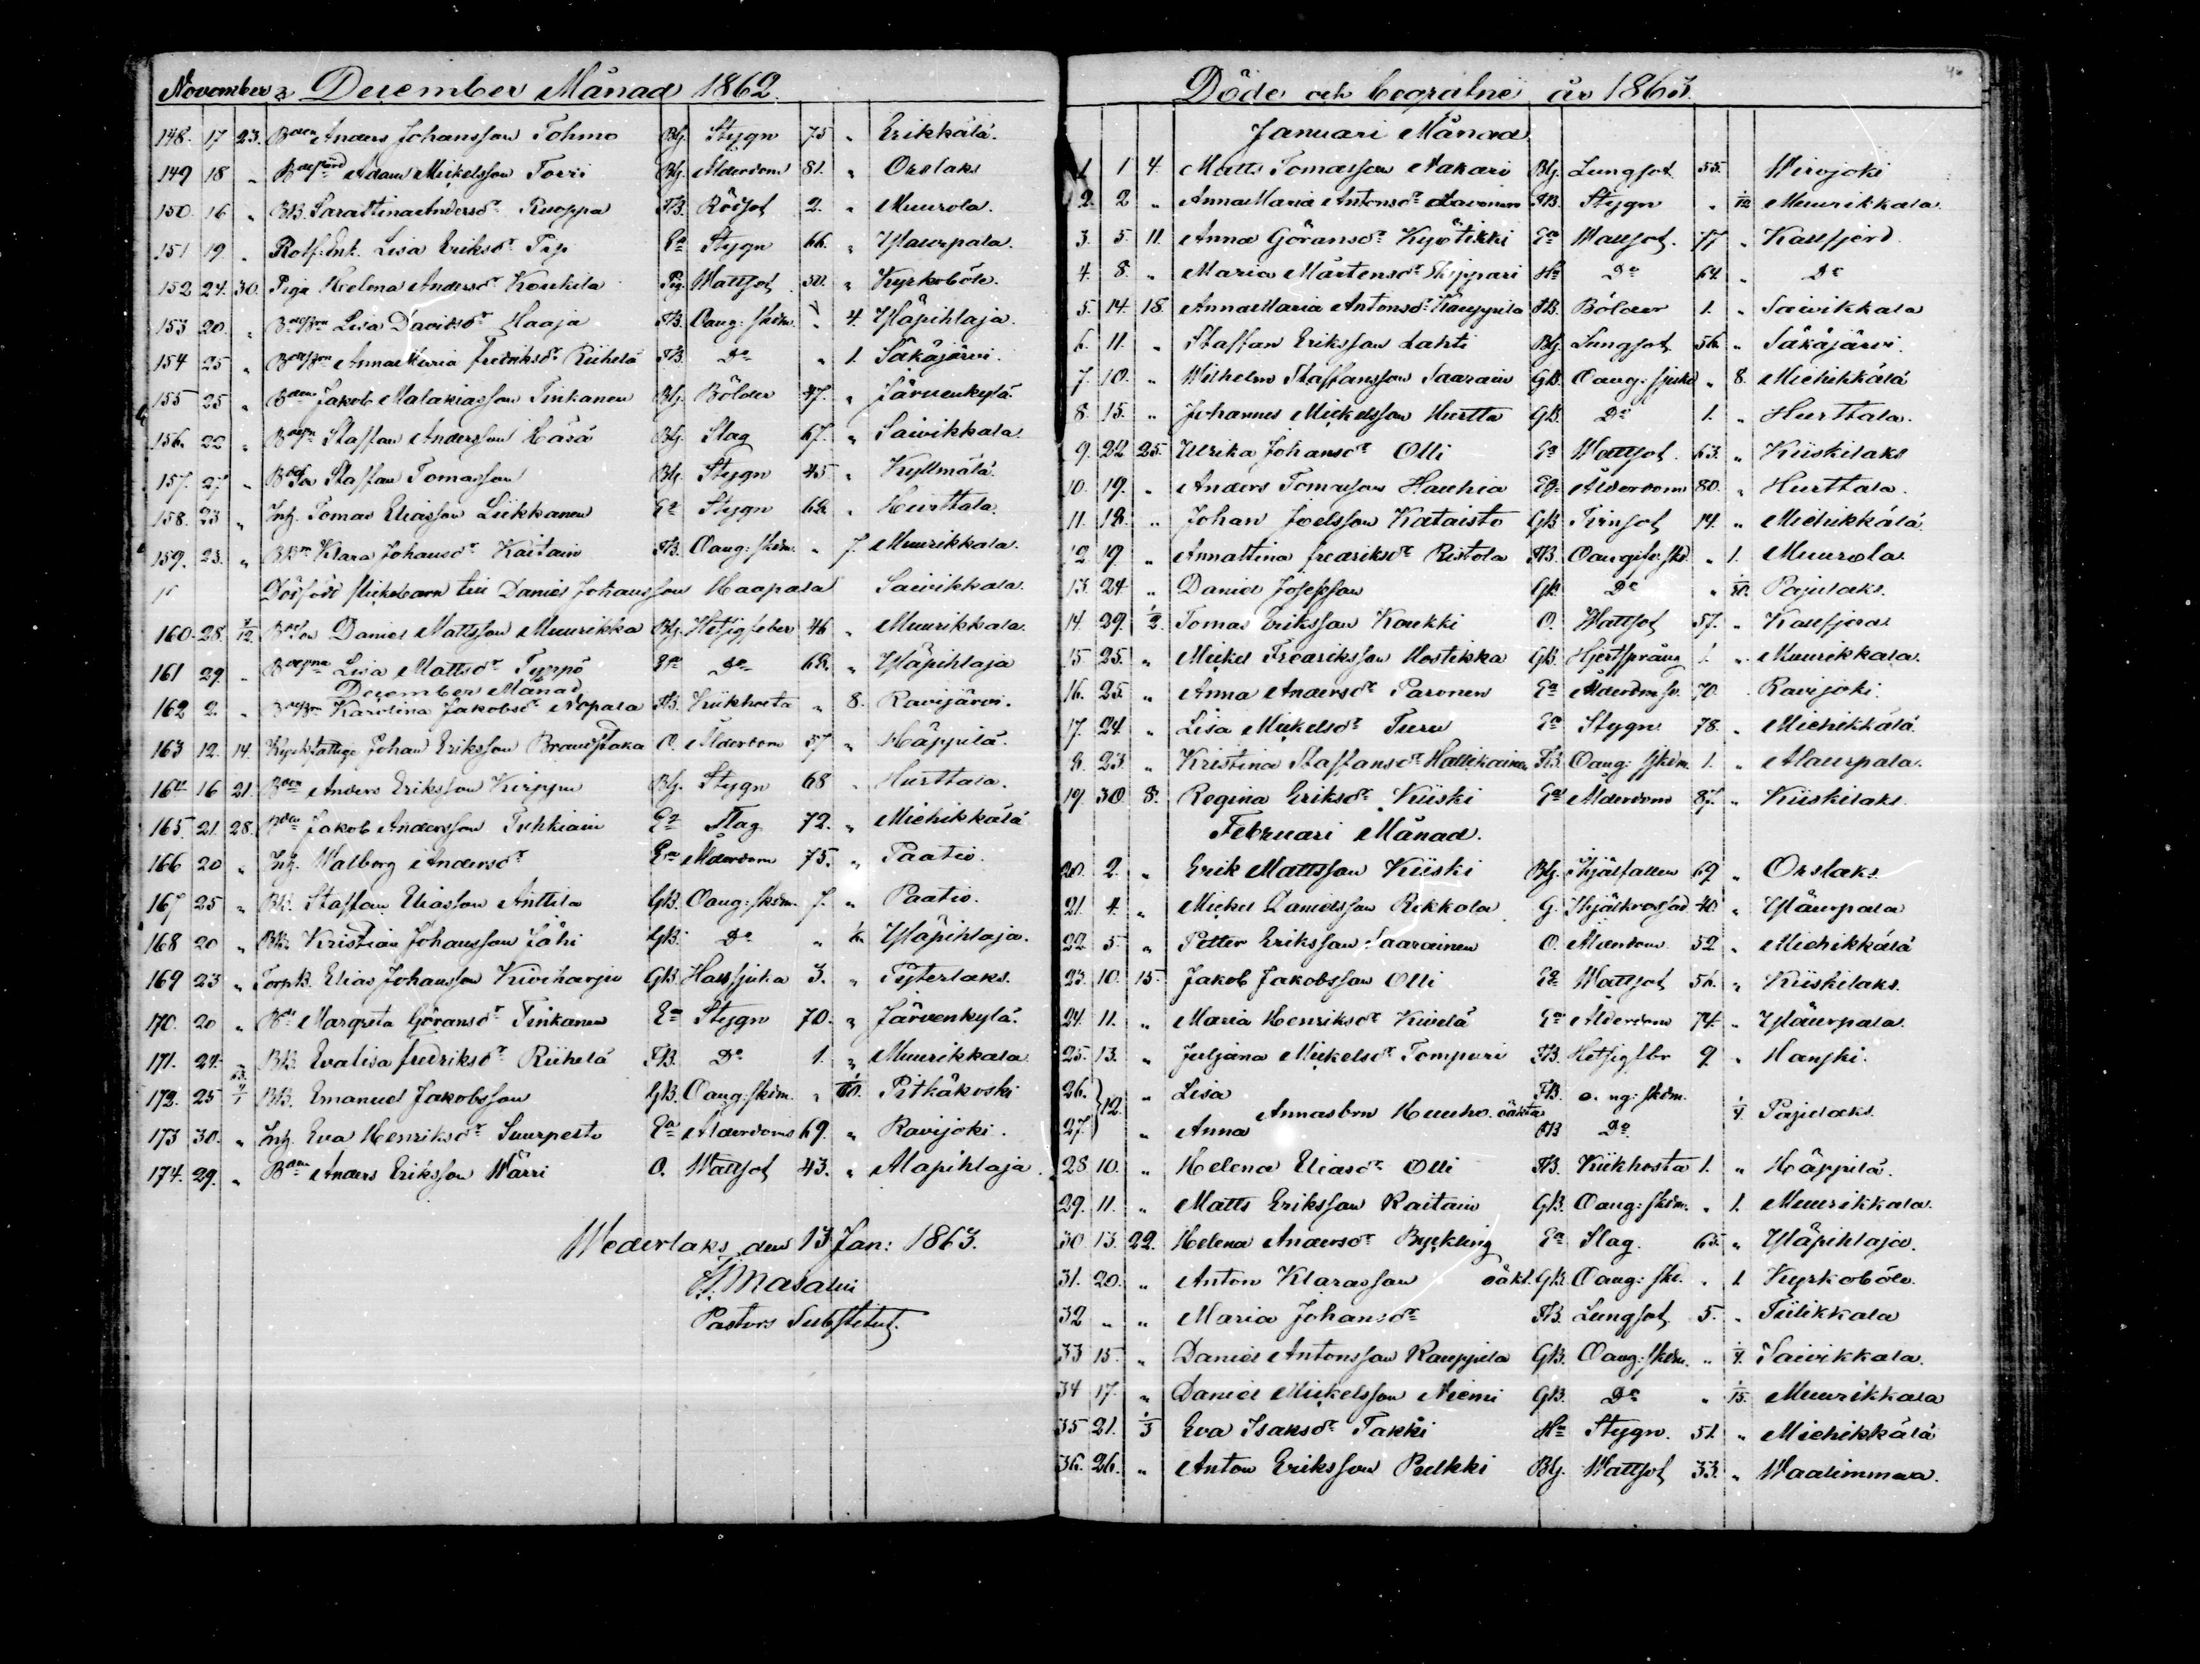 November & December Månad 1862.
148. 17 23. Anders Johansson Tohmo Bg. Stygn 75 „ Erikkälä.
149 18 „ Adam Mickelsson Torri Bg. Ålderdom 81. „ Orslaks
150. 16 „ BB. Saratiina Andersdr Ruoppa FB. Rödsot 2. „ Muurola.
151 19 „ Rotf. Enk. Lisa Eriksdr Ea Stygn 66. „ Yläurpala.
152 24. 30. Piga Helena Andersdr Koukila Pig. Wattsot 50. „ Kyrkoböle.
153 20. „ Lisa Davidsdr Haaja FB. Oang: skdm. „ 4. Yläpihlaja.
154 25 „ Anna Maria Fredriksdr Riihelä FB. Do „ 1. Säkäjärvi.
155 25 „ Jakob Malakiasson Tinkanen Bg. Bölder 47. „ Järvenkylä.
156. 22 „ Staffan Andersson Bg. Slag 67. „ Saivikkala.
157. 27 „ Staffan Tomasson Bg. Stygn 45 „ Kyllmälä.
158. 23 „ Inh. Tomas Eliasson Liikkanen Ea Stygn 68. „ Hurttala.
159. 23. „ Klara Johansdr Kaitain FB. Oang: skdm. „ 7. Muurikkala.
Dödfödt flickebarn till Daniel Johansson Haapala Saivikkala.
160. 28. 7/12. Daniel Mattsson Muurikka Bg. Hetsigfeber 46 „ Muurikkala.
161 29. „ Lisa Mattsdr Tyrpö Do 68. „ Yläpihlaja
December Månad
162 2. „ Karolina Jakobsdr Nopala FB. Kiikhosta „ 8. Ravijärvi.
163 12. 14. Johan Eriksson Brandstaka O. Ålderdom 57 „ Häppilä.
164 16 21. Anders Eriksson Kirppu Bg. Stygn 68 „ Hurttala.
165. 21. 28. Jakob Andersson Tuhkiain Ea Slag 72. „ Miehikkälä
166 20 „ Inh. Walborg Andersdr Ea Ålderdom 75. „ Paatio.
167 25 „ BB. Staffan Eliasson Anttila GB. Oang: skdm. 7. „ Paatio.
168 20 „ BB. Kristian Johansson Lähi GB. Do „ Yläpihlaja.
169 23 „ Torp.B. Elias Johansson Kiviharju GB. Halssjuka 3. „ Tyterlaks.
170. 20 „ Margreta Göransdr Tinkanen Ea Stygn 70. „ Järvenkylä.
171. 24. „ BB. Evalisa Fredriksdr Riihelä FB. Do 1. „ Muurikkala
172. 25 BB. Emanuel Jakobsson GB. Oang: skdm. „ Pitkäkoski
173 30. „ Inh. Eva Henriksdr Suurpelto Ea Ålderdoms 69. „ Ravijoki.
174. 29. „ Anders Eriksson Wärri O. Wattsot 43. „ Alapihlaja.
Wederlaks den 13 Jan: 1863.
Masalin
Pastors Substitut.
Döde och begrafne år 1863.
Januari Månad.
1 1 4. Matts Tomasson Nakari Bg. Lungsot 55. Wirojoki
2. 2 „ Anna Maria Antonsdr FB. Stygn „ 1/12 Muurikkala.
3. 5. 11. Anna Göransdr Kyötikki Ea Wattsot. 77 „ Kallfjerd.
4. 8. „ Maria Mårtensdr Skippari Ha Do 64. „ Do
5. 14. 18. Anna Maria Antonsdr Kauppila FB. Bölder 1. „ Saivikkala
6. 11. „ Staffan Eriksson Lahti Bg. Lungsot 56. „ Säkäjärvi.
7. 10. „ Wilhelm Staffansson Saarain GB. Oang: sjukd „ 8. Miehikkälä
8. 15. „ Johannes Mickelsson Hurtta GB. Do 1. „ Hurttala.
9. 22 25. Ulrika Johansdr Olli Ea Wattsot 63. „ Kiiskilaks
10. 19. „ Anders Tomasson Hauhia Eg. Ålderdom 80. „ Hurttala.
11. 18. „ Johan Joelsson Kataisto GB. Tvinsot 14. „ Miehikkälä
12 19. „ Annastina Fredriksdr Ristola FB. „ 1. Muurola.
13. 24 „ Daniel Josefsson GB. Do „ Pajulaks.
14. 29. 1/2. Tomas Eriksson Koukki O. Wattsot 57. „ Kallfjerd
15 25. „ Mickel Fredriksson Mostikka GB. Hjertsprång 1. „ Muurikkala.
16. 25. „ Anna Andersdr Paronen Ea 70. Ravijoki.
17. 24. „ Lisa Mickelsdr Turu Ea Stygn 78. „ Miehikkälä.
8. 23. „ Kristina Staffansdr Hallikainen FB. Oang: sjkdm. 1. „ Alaurpala.
19. 30 8. Regina Eriksdr Kiiski Ea Ålderdom 87. „ Kiiskilaks.
Februari Månad.
20. 2. „ Erik Mattsson Kiiski Bg. Ihjälfallen 69 „ Orslaks.
21. 4. „ Mickel Danielsson Rikkola G. Ihjälkrossad 40. „ Yläurpala
22. 5. „ Petter Eriksson Saarainen O. Ålderdom 52. „ Miehikkälä
23. 10. 15. Jakob Jakobsson Olli Ea Wattsot 56. „ Kiiskilaks.
24. 11. „ Maria Henriksdr Kivelä Ea Ålderdom 74. „ Yläurpala.
25. 13. „ Juljana Mickelsdr Tompuri FB. Hetsigfbr 9. „ Hanski.
26. 12. „ Lisa FB. o. ng: skdm.
Annasbrn Huuho. oäkta 1/4. Pajulaks.
27. „ Anna FB Do.
28 10. „ Helena Eliasdr Olli FB. Kiikhosta 1. „ Häppilä.
29. 11. „ Matts Eriksson Raitain GB. Oang: skdm. „ 1. Muurikkala.
30 13. 22. Helena Andersdr Byckling Ea Slag. 65. „ Yläpihlaja.
31. 20. „ Anton Klarasson oäkt. GB. Oang: skd. „ 1. Kyrkoböle.
32 „ „ Maria Johansdr FB. Lungsot 5. „ Tiilikkala
33 15. „ Daniel Antonsson Kauppila GB. Oang: skdm. „ 1/4. Saivikkala.
34 17. „ Daniel Mickelsson Niemi GB. Do „ 1/15. Muurikkala
35 21. 1/3 Eva Isaksdr Takki Ha Stygn. 51. „ Miehikkälä
36. 26. „ Anton Eriksson Pulkki Bg. Wattsot 33. „ Waalimmaa.